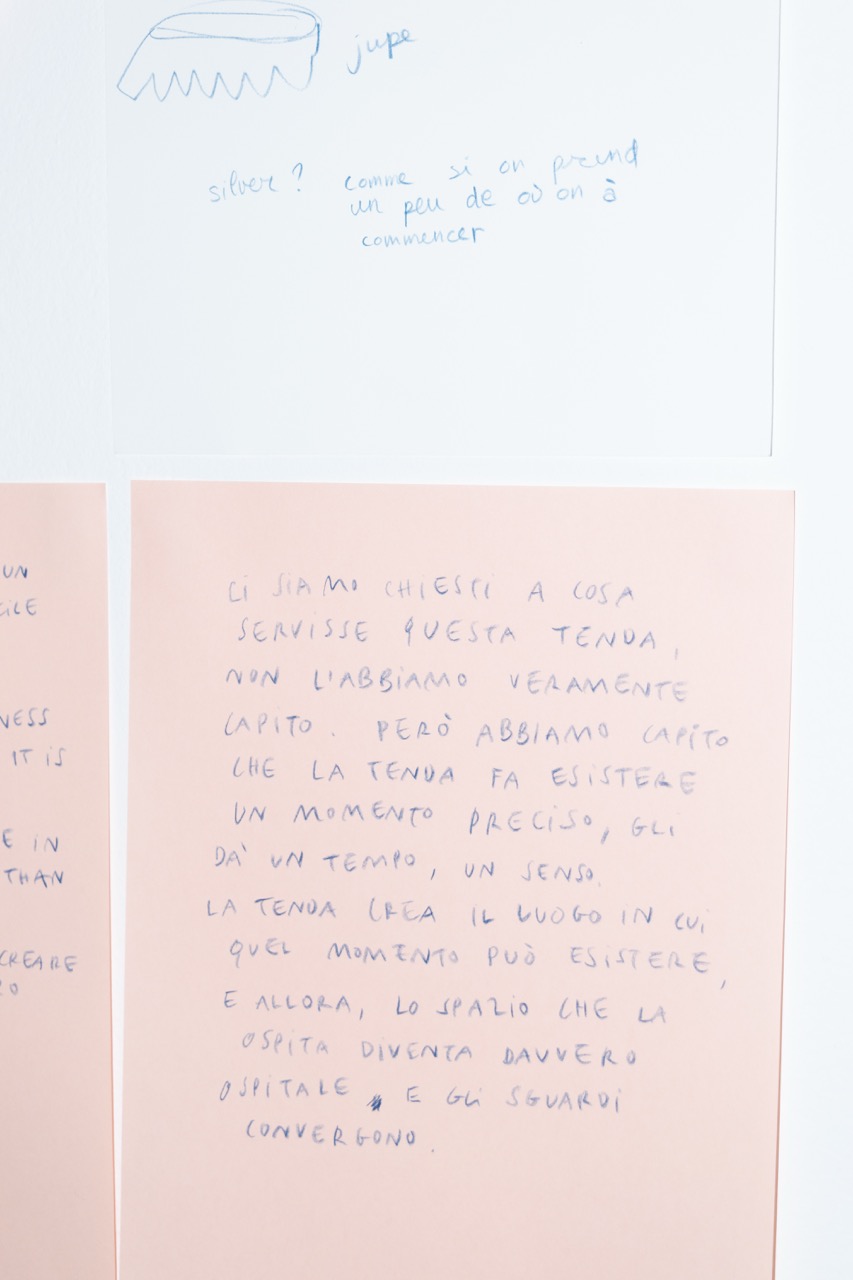 jupe
silver? comme si on prend
un peu de où on à
commencer
UN
CILE
NESS
IT IS
E IN
THAN
CREARE
RO
CI SIAMO CHIESTI A COSA
SERVISSE QUESTA TENDA,
NON L'ABBIAMO VERAMENTE
CAPITO. PERÒ ABBIAMO CAPITO
CHE LA TENDA FA ESISTERE
UN MOMENTO PRECISO, GLI
DA' UN TEMPO, UN SENSO.
LA TENDA CREA IL LUOGO IN CUI
QUEL MOMENTO PUÒ ESISTERE,
E ALLORA, LO SPAZIO CHE LA
OSPITA DIVENTA DAVVERO
OSPITALE E GLI SGUARDI
CONVERGONO.